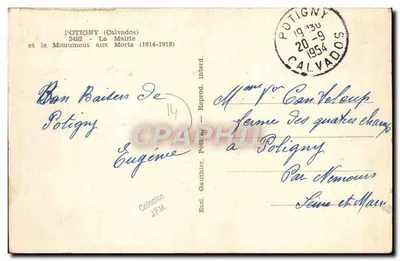 POTIGNY (Calvados)
2482 - La Mairie
et le Monument aux Morts (1914-1918)
POTIGNY
19H30
20-9
1954
CALVADOS
Bon Baisers de
Potigny
Eugénie
14
CPARAMA
Collection
J.F.M.
Excl. Gauthier, Potigny - Reprod. interd.
Mme Vve Canteloup
ferme des quatres champs
à Poligny
Par Nemours
Seine et Marne